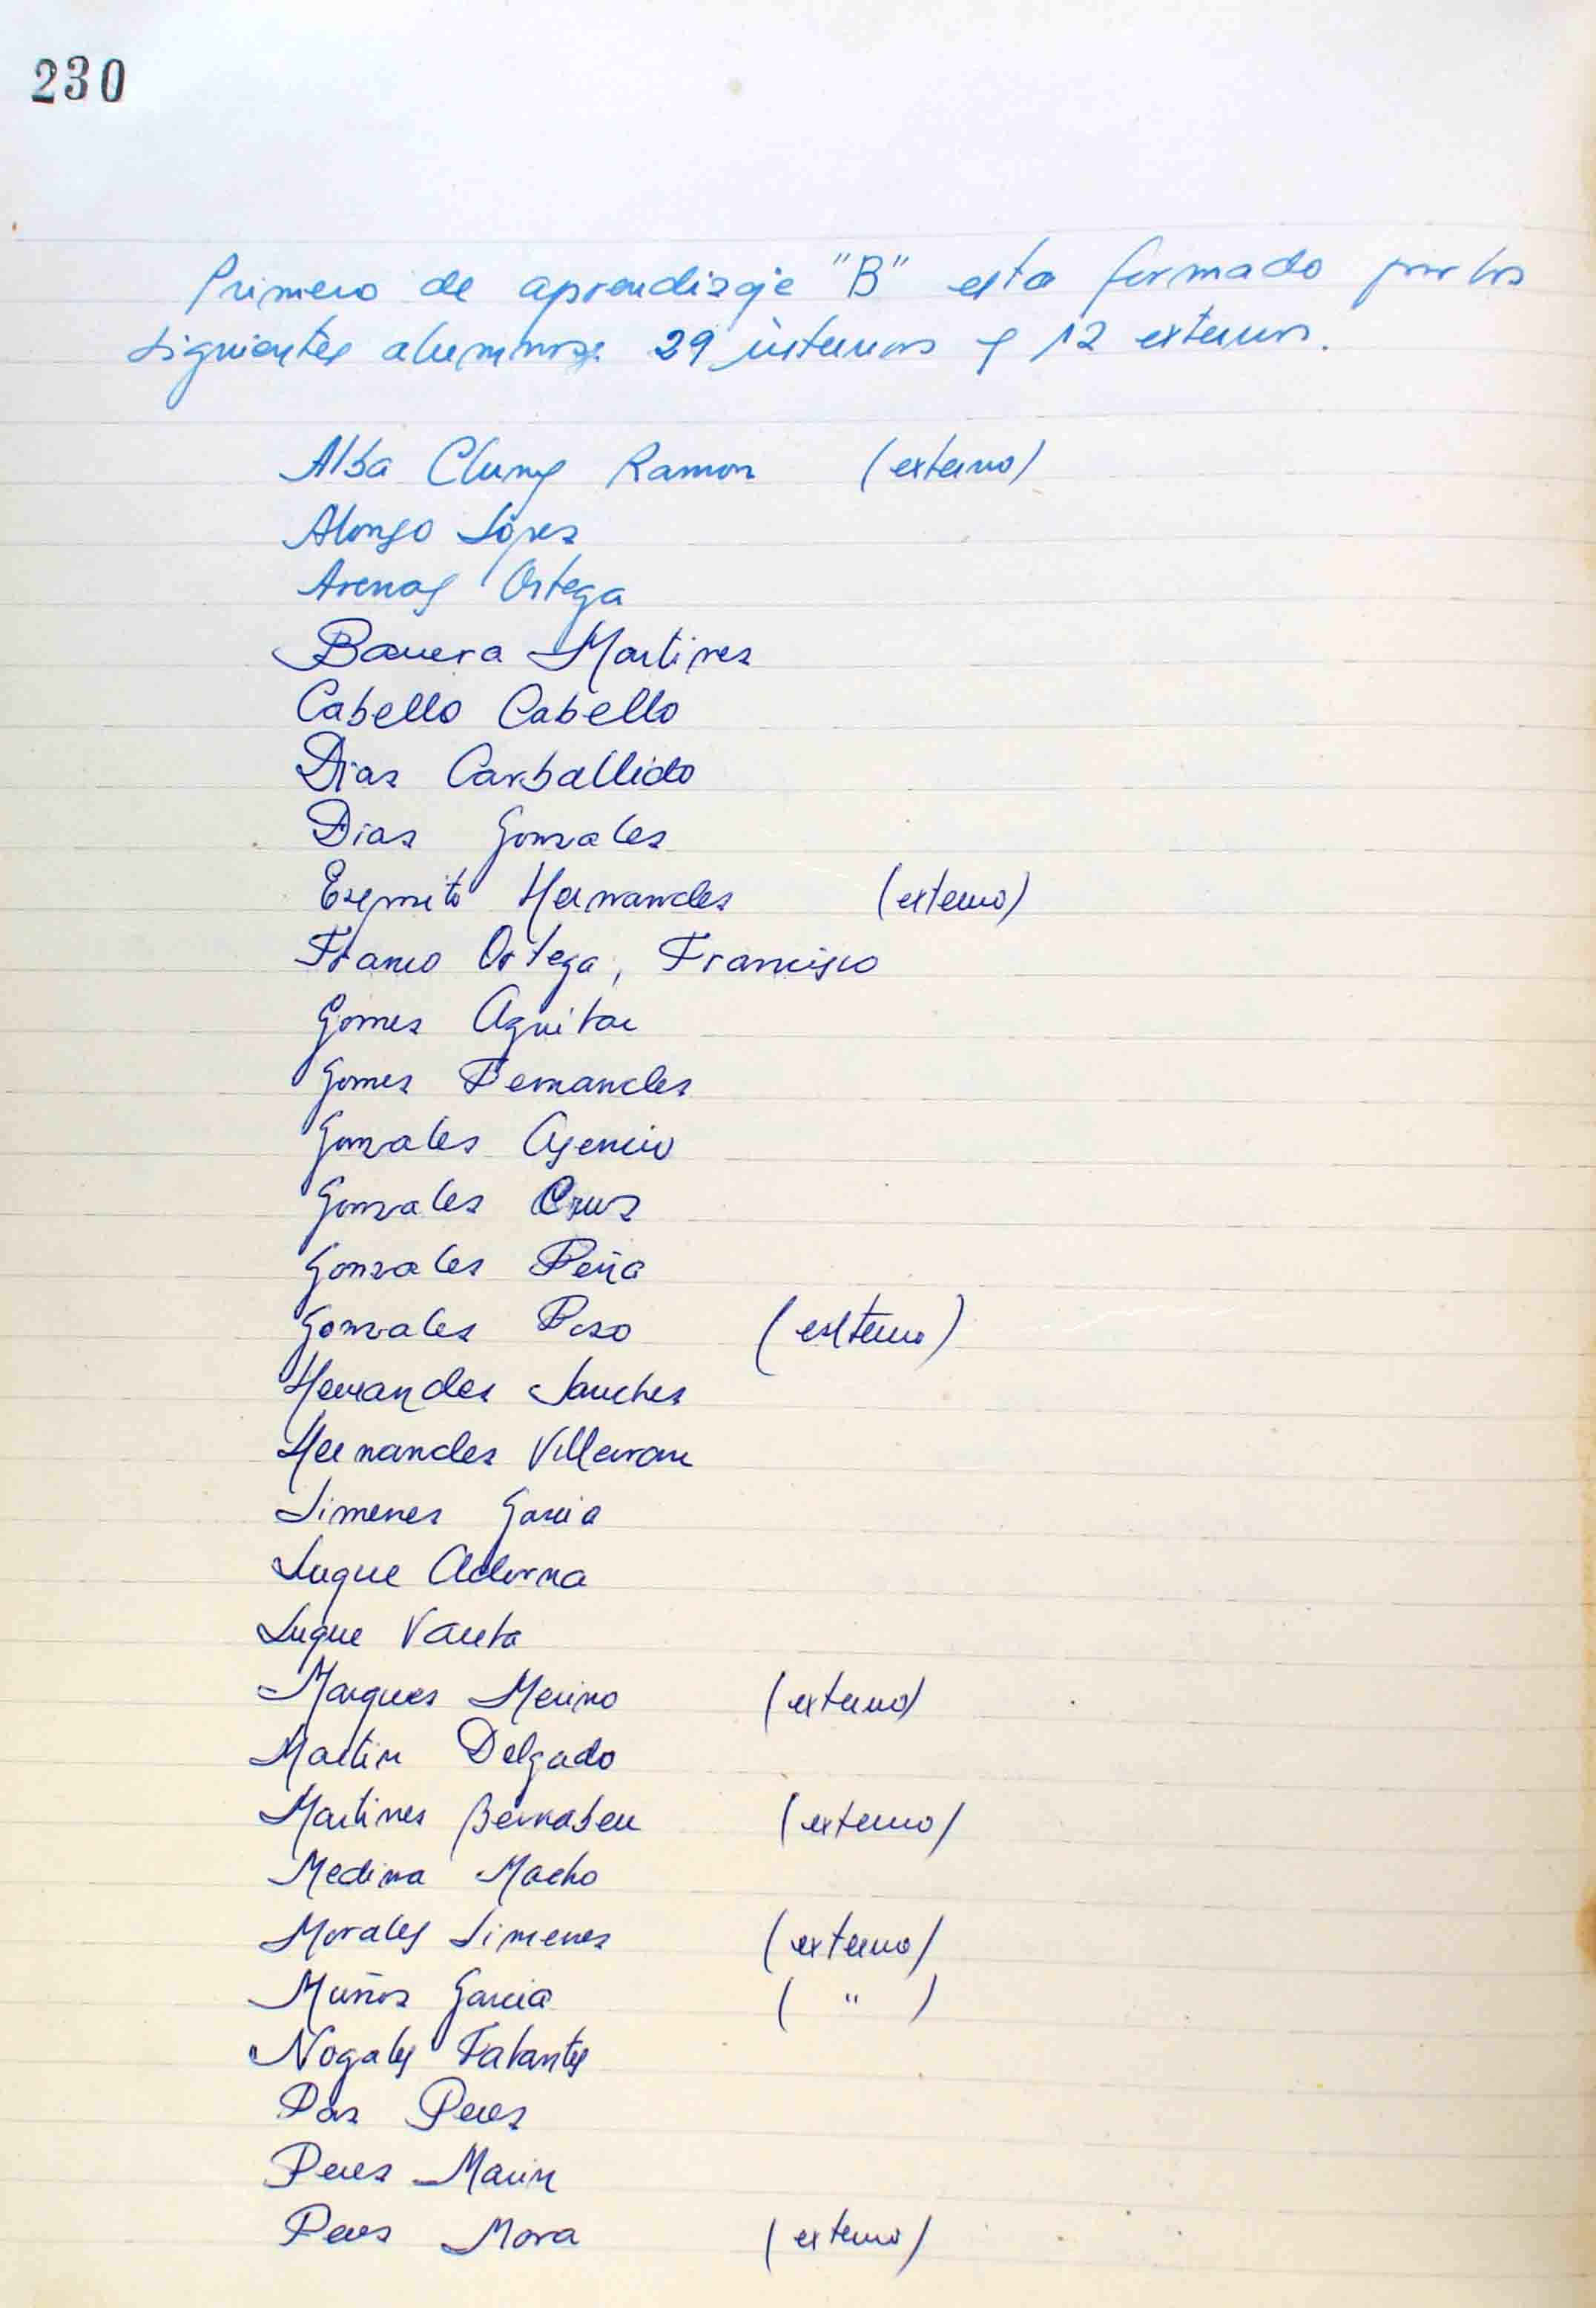 230
Primero de aprendizaje "B" esta formado por los
siguientes alumnos: 29 internos y 12 externos.
Alba Cluny Ramon (externo)
Alonso Lópes
Arenas Ortega
Barrera Martines
Cabello Cabello
Dias Carballido
Dias Gonzales
Espinito Hernandes (externo)
Franco Ortega, Francisco
Gomes Aguilar
Gomes Fernandes
Gonzales Asencio
Gonzales Cruz
Gonzales Peña
Gonzales Pozo (externo)
Hernandes Sanches
Hernandes Villaran
Jimenes Garcia
Luque Adorna
Luque Varela
Marques Merino (externo)
Martin Delgado
Martines Bernabeu (externo)
Medina Macho
Morales Jimenes (externo)
Muñoz Garcia ( " )
Nogales Tabantes
Paz Peres
Peres Marin
Peres Mora (externo)